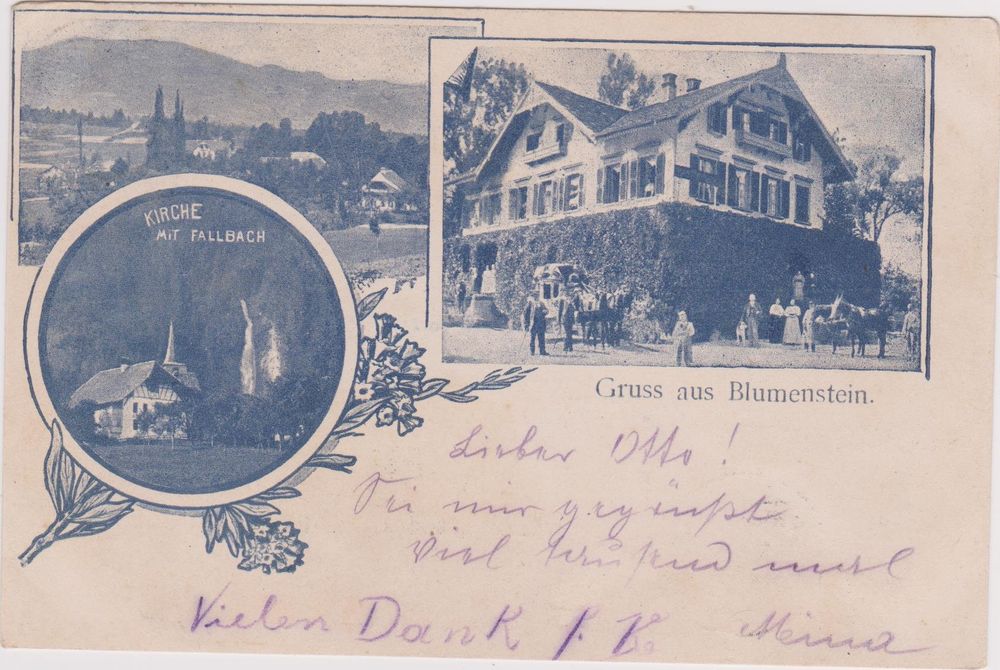 KIRCHE
MIT FALLBACH
Gruss aus Blumenstein.
Lieber Otto!
Sei mir gegrüßt
viel tausend mal
Vielen Dank f. K. Mina